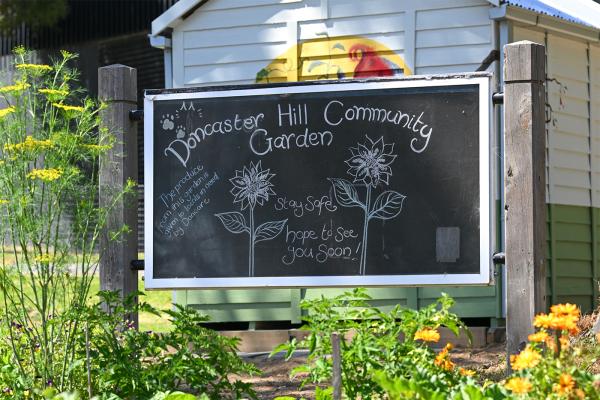 Doncaster Hill Community
Garden
The produce
from this garden is
given to locals in need
by Doncare
Stay safe
hope to see
you soon!